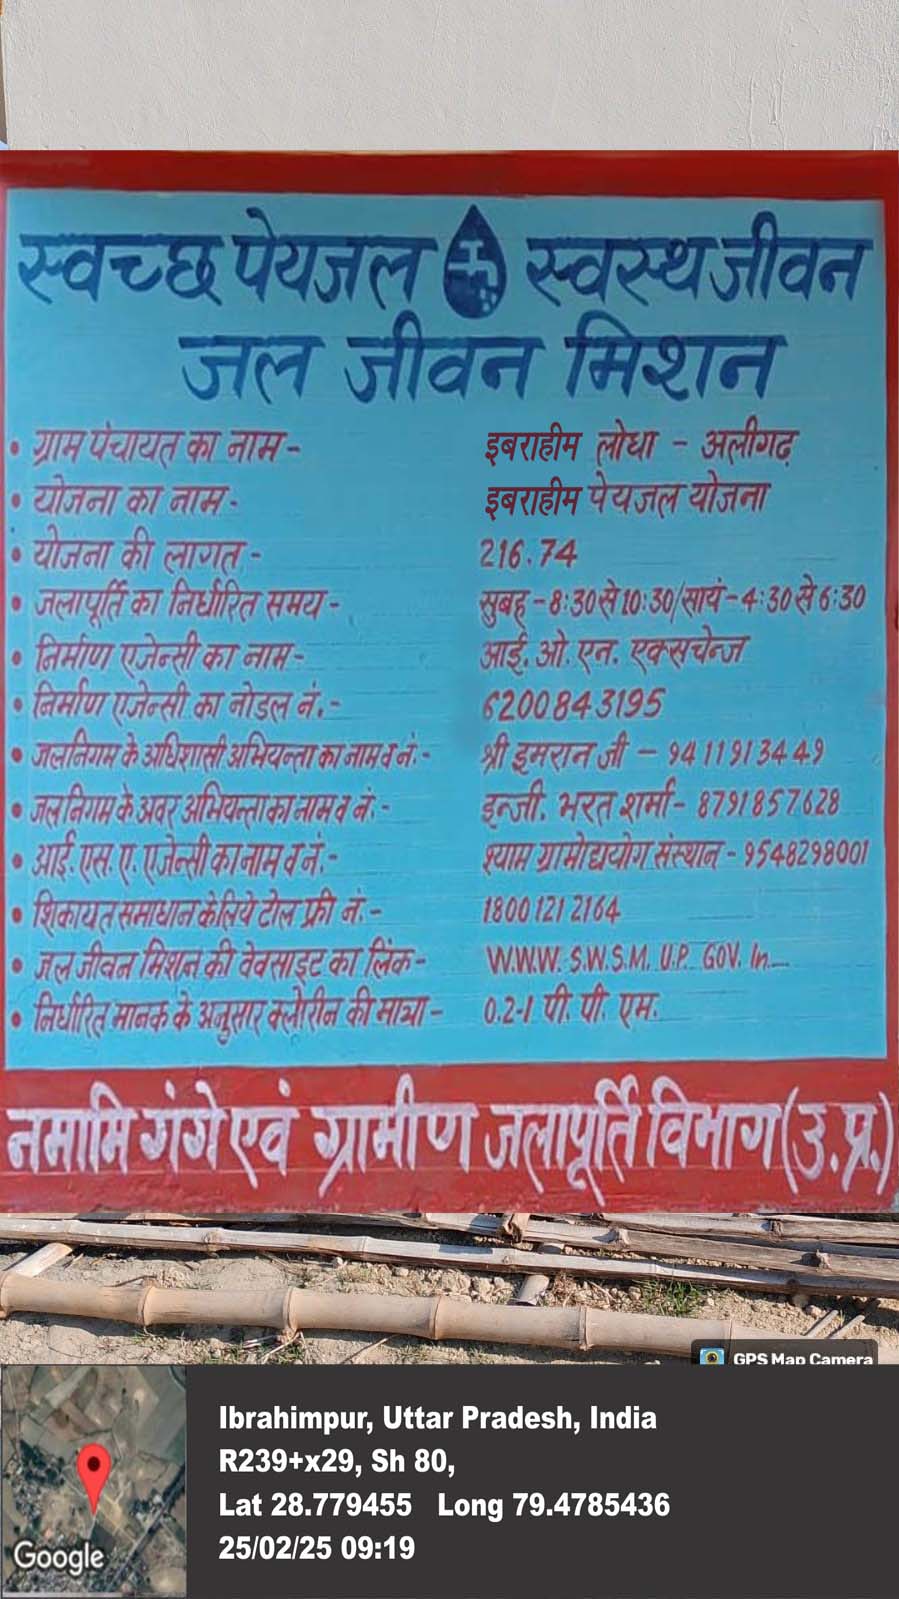 स्वच्छ पेयजल स्वस्थ जीवन
जल जीवन मिशन
• ग्राम पंचायत का नाम - इबराहीम लोधा - अलीगढ़
• योजना का नाम - इबराहीम पेयजल योजना
• योजना की लागत - 216.74
• जलापूर्ति का निर्धारित समय - सुबह - 8:30 से 10:30/सायं - 4:30 से 6:30
• निर्माण एजेन्सी का नाम - आई. ओ. एन. एक्सचेन्ज
• निर्माण एजेन्सी का नोडल नं. - 6200843195
• जलनिगम के अधिशासी अभियन्ता का नाम व नं. - श्री इमरान जी - 9411913449
• जलनिगम के अवर अभियन्ता का नाम व नं. - इन्जी. भरत शर्मा - 8791857628
• आई. एस. ए. एजेन्सी का नाम व नं. - श्याम ग्रामोद्ययोग संस्थान - 9548298001
• शिकायत समाधान के लिये टोल फ्री नं. - 1800 121 2164
• जल जीवन मिशन की वेवसाइट का लिंक - W.W.W. S.W.S.M. U.P. GOV. In
• निर्धारित मानक के अनुसार क्लोरीन की मात्रा - 0.2-1 पी. पी. एम.
नमामि गंगे एवं ग्रामीण जलापूर्ति विभाग (उ.प्र.)
GPS Map Camera
Ibrahimpur, Uttar Pradesh, India
R239+x29, Sh 80,
Lat 28.779455 Long 79.4785436
25/02/25 09:19
Google